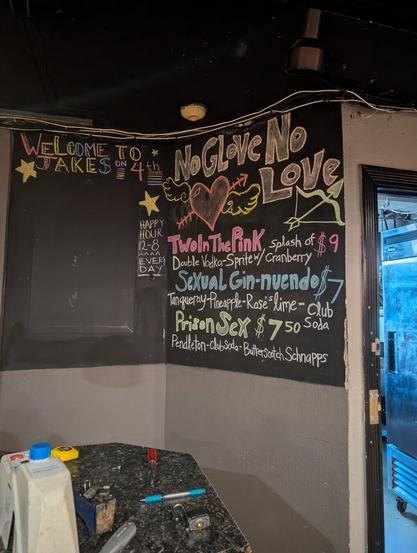 WELCOME TO
JAKES ON 4th
HAPPY
HOUR
12-8
EVERY
DAY
No Glove No
Love
Two In The Pink, splash of $9
Double Vodka-Sprite w/ Cranberry
Sexual Gin-nuendo $7
Tanqueray-Pineapple-Rose's lime-Club
Soda
Prison Sex $7.50
Pendleton-clubsoda-Butterscotch Schnapps